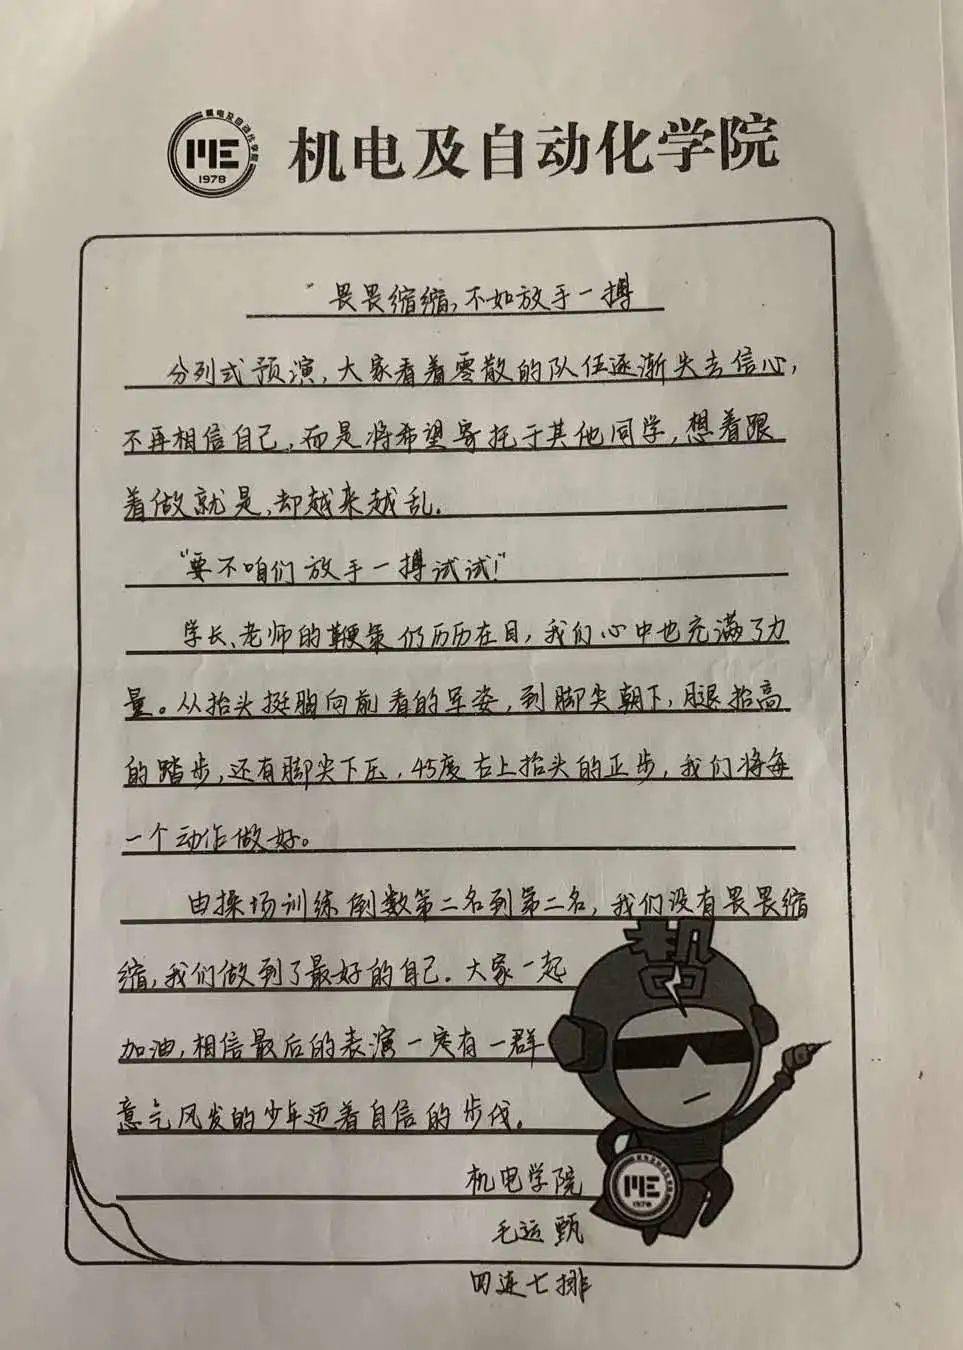 机电及自动化学院
ME
1978
机电及自动化学院
畏畏缩缩,不如放手一搏
分列式预演,大家看着零散的队伍逐渐失去信心,
不再相信自己,而是将希望寄托于其他同学,想着跟
着做就是,却越来越乱.
"要不咱们放手一搏试试!"
学长、老师的鞭策仍历历在目,我们心中也充满了力
量。从抬头挺胸向前看的军姿,到脚尖朝下,腿抬高
的踏步,还有脚尖下压,45度右上抬头的正步,我们将每
一个动作做好。
由操场训练倒数第二名到第二名,我们没有畏畏缩
缩,我们做到了最好的自己.大家一起
加油,相信最后的表演一定有一群
意气风发的少年迈着自信的步伐。
机电学院
毛运甄
四连七排
ME
1978